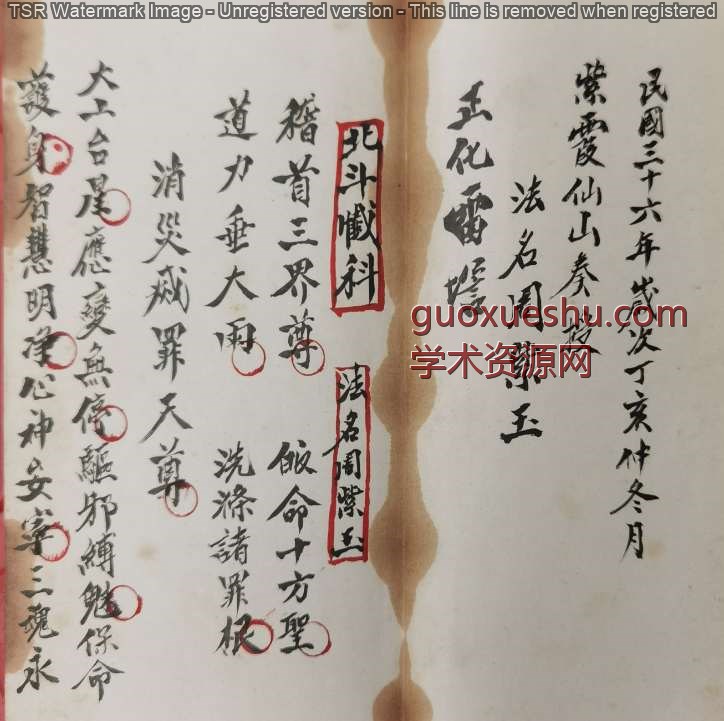 TSR Watermark Image - Unregistered version - This line is removed when registered
民國三十六年歲次丁亥仲冬月
紫霞仙山奏授
法名周紫玉
玉化雷壇
guoxueshu.com
学术资源网
北斗懺科 法名周紫玉
稽首三界尊 皈命十方聖
道力垂大雨 洗滌諸罪根
消災滅罪天尊
大上台星應變無停驅邪縛魅保命
護身智慧明凈心神安寧三魂永